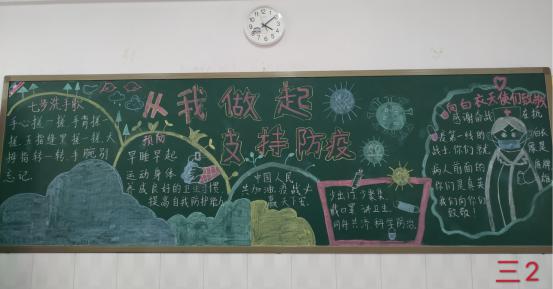 从我做起
支持防疫
七步洗手歌
手心搓一搓 手背搓一
搓 手指缝里搓一搓 大
拇指转一转 手腕别
忘记
预防
早睡早起
运动身体
养成良好的卫生习惯
提高自我防护能力
中国人民
共加油 疫战必
赢天下安
少出门 少聚集
戴口罩 讲卫生
同舟共济 科学防治
向白衣天使们致敬
感谢奋战在抗
在第一线的
战士 你们就
病人前面的
你们是真美
我们向你们
致敬！
三2